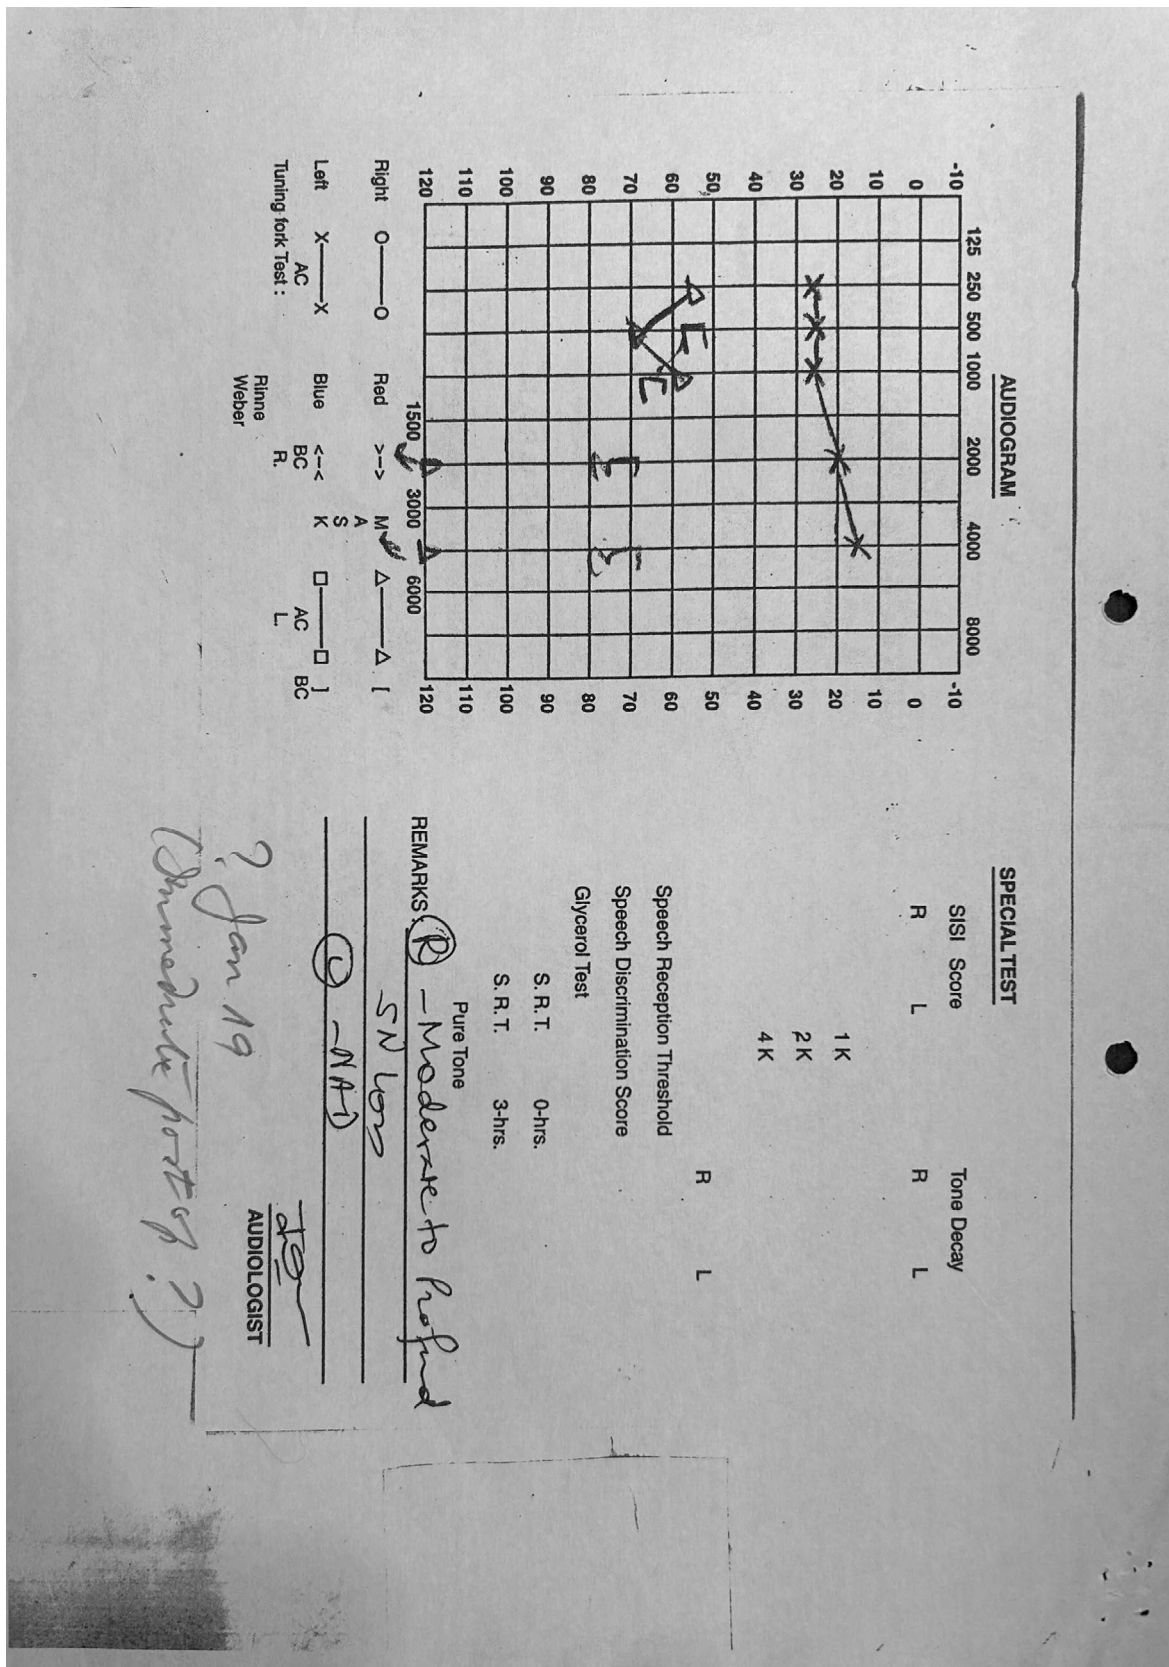 AUDIOGRAM
125 250 500 1000 2000 4000 8000
-10 -10
0 0
10 10
20 20
30 30
40 40
50 50
60 60
70 70
80 80
90 90
100 100
110 110
120 120
1500 3000 6000
Right O——O Red >--> M △——△ [
A
S
Left X——X Blue <--< K □——□ ]
AC BC AC BC
Tuning fork Test : R. L.
Rinne
Weber
SPECIAL TEST
SISI Score Tone Decay
R L R L
1 K
2 K
4 K
R L
Speech Reception Threshold
Speech Discrimination Score
Glycerol Test
S. R. T. 0-hrs.
S. R. T. 3-hrs.
Pure Tone
REMARKS: R - Moderate to Profund
SN loss
L - NAD
AUDIOLOGIST
? Jan 19
(Immediate post op ?)